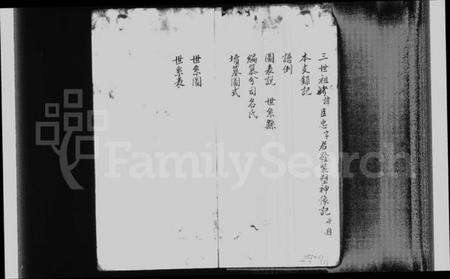 三世祖諱臣忠字君發裝塑神像記
本支録記
譜例
圖表説 世系縣
編纂分司名氏
墳墓圖式
世系圖
世系表
FamilySearch